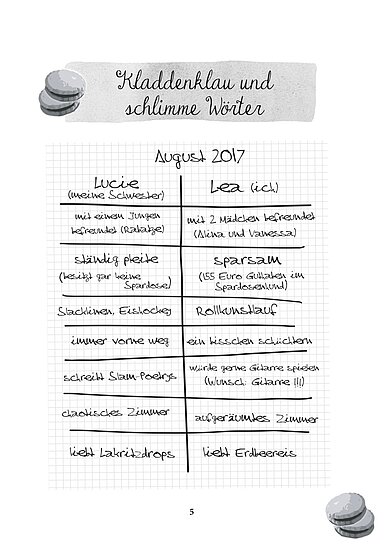 Kladdenklau und
schlimme Wörter
August 2017
Lucie
(meine Schwester)
Lea (ich)
mit einem Jungen
befreundet (Rakatze)
mit 2 Mädchen befreundet
(Alina und Vanessa)
ständig pleite
(besitzt gar keine
Spardose)
sparsam
(155 Euro Guthaben im
Spardosenhund)
Slacklinen, Eishockey
Rollkunstlauf
immer vorne weg
ein bisschen schüchtern
schreibt Slam-Poetrys
würde gerne Gitarre spielen
(Wunsch: Gitarre !!!)
chaotisches Zimmer
aufgeräumtes Zimmer
liebt Lakritzdrops
liebt Erdbeereis
5